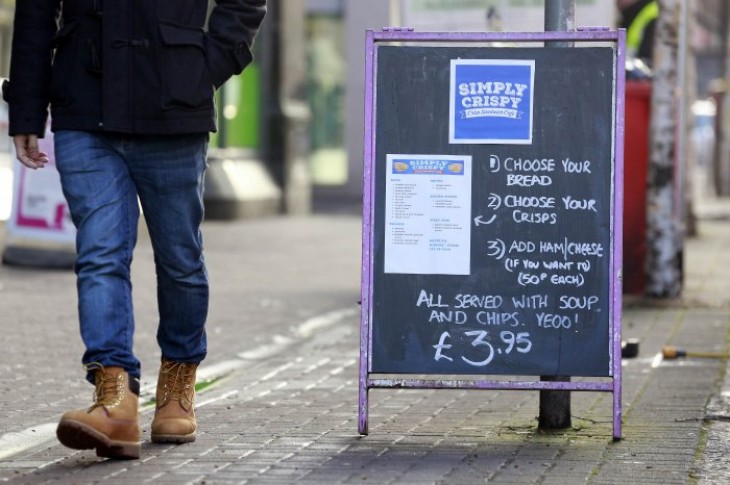 SIMPLY
CRISPY
Crisp Sandwich Cafe
SIMPLY CRISPY
1) CHOOSE YOUR
BREAD
2) CHOOSE YOUR
CRISPS
3) ADD HAM/CHEESE
(IF YOU WANT TO)
(50P EACH)
ALL SERVED WITH SOUP
AND CHIPS. YEOO!
£3.95